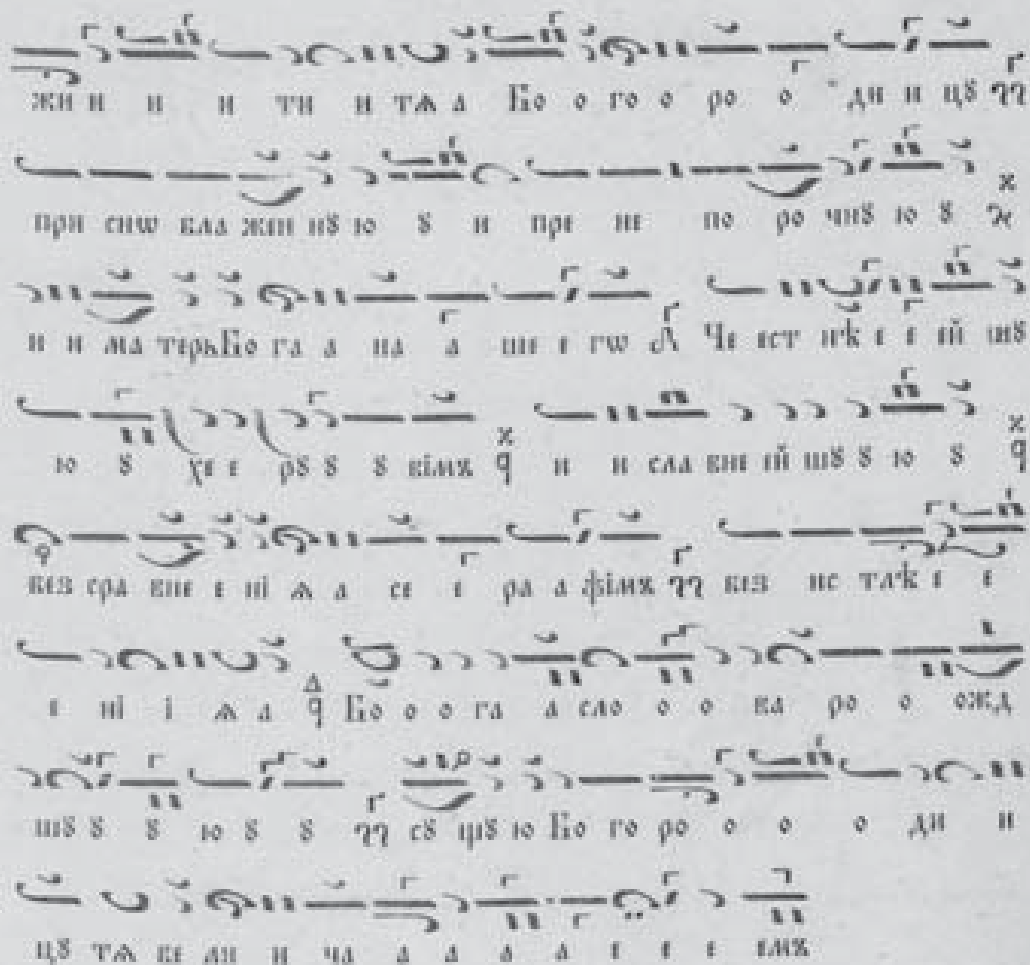 жи и и и ти и тѧ а Бо о го о ро о ди и цꙋ
при сны бла жен нꙋ ю ꙋ и пре не по ро чнꙋ ю ꙋ
и и ма терь Бо га а на а ше е гѡ Че ест нѣ е е ей шꙋ
ю ꙋ хе е рꙋ ꙋ ꙋ вімъ и и сла вне ей шꙋ ꙋ ю ꙋ
без сра вне е ні ѧ а се е ра а фімъ без ис тлѣ е е
е ні і ѧ а Бо о о га а сло о о ва ро о ожд
шꙋ ꙋ ꙋ ю ꙋ ꙋ сꙋ щꙋ ю Бо го ро о о о ди и
цꙋ тѧ ве ли и ча а а а а е е е емъ